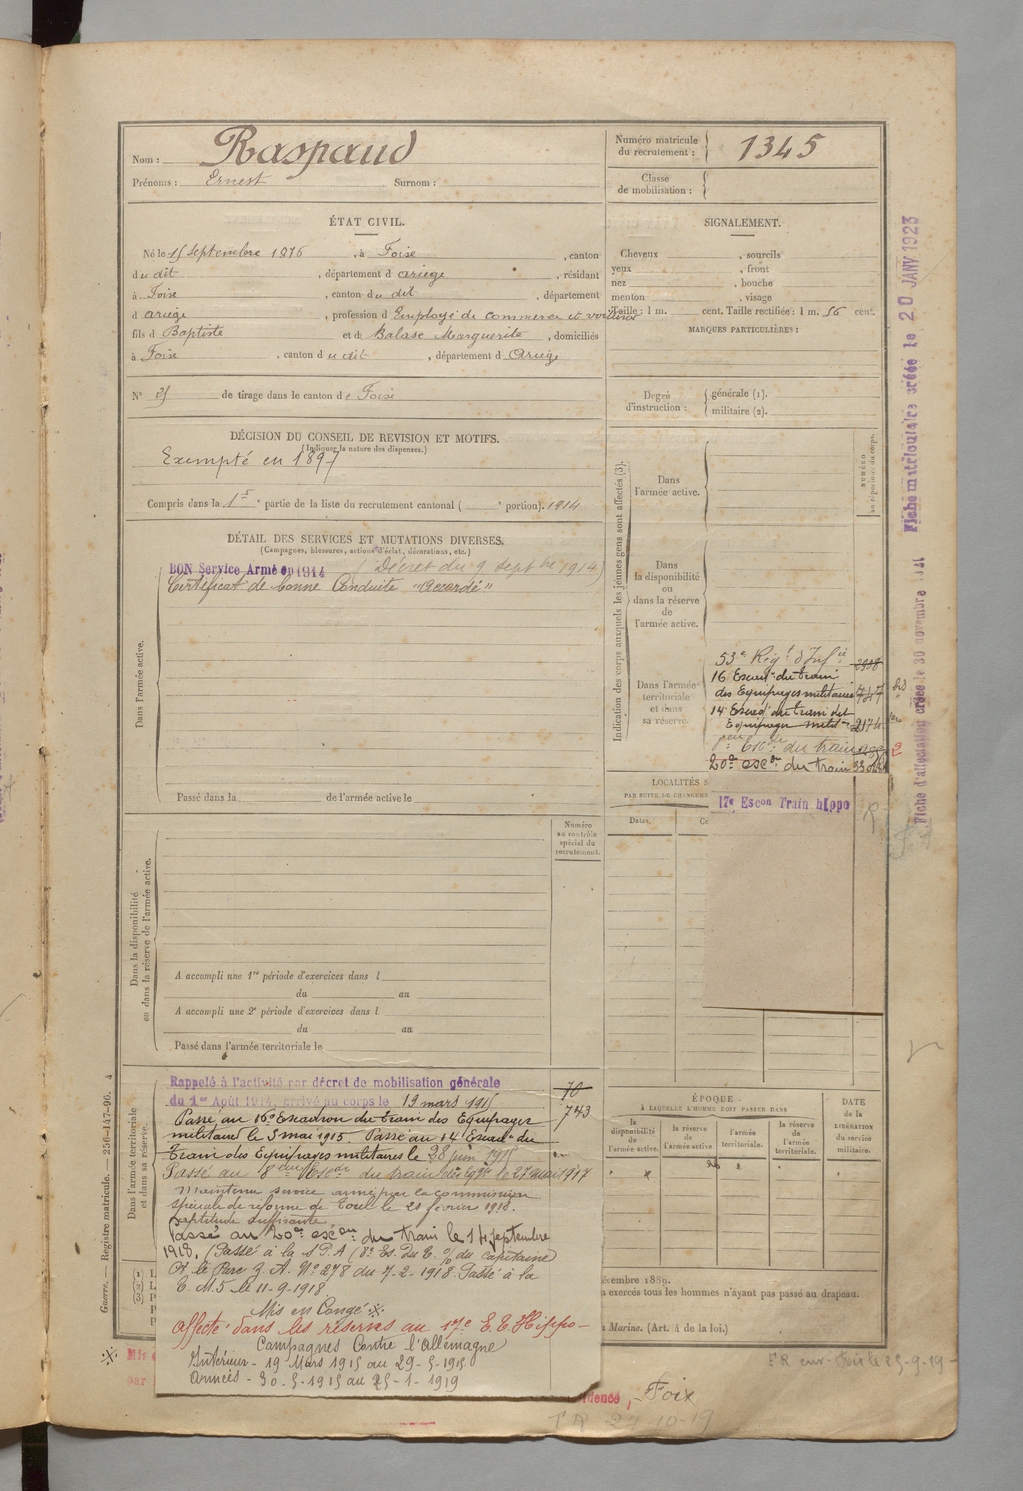 Nom : Raspaud
Prénoms : Ernest Surnom :
Numéro matricule du recrutement : 1345
Classe de mobilisation :
ÉTAT CIVIL.
Né le 15 septembre 1876, à Foix, canton
du dit, département d ariège, résidant
à Foix, canton du dit, département
d ariège, profession d Employé de commerce et voiturier
fils d Baptiste et d Balase Marguerite, domiciliés
à Foix, canton du dit, département d Ariège
N° de tirage dans le canton de Foix
SIGNALEMENT.
Cheveux , sourcils
yeux , front
nez , bouche
menton , visage
Taille : 1 m. cent. Taille rectifiée : 1 m. 56 cent.
MARQUES PARTICULIÈRES :
Degré d'instruction : générale (1).
militaire (2).
DÉCISION DU CONSEIL DE REVISION ET MOTIFS.
(Indiquer la nature des dispenses.)
Exempté en 1897
Compris dans la 1re partie de la liste du recrutement cantonal ( e portion). 1914
DÉTAIL DES SERVICES ET MUTATIONS DIVERSES.
(Campagnes, blessures, actions d'éclat, décorations, etc.)
BON Service Armé en 1914 (Décret du 9 septbre 1914)
Certificat de bonne Conduite "Accordé"
Dans l'armée active.
Passé dans la de l'armée active le
Numéro au contrôle spécial du recrutement.
Dans la disponibilité ou dans la réserve de l'armée active.
A accompli une 1re période d'exercices dans l
du au
A accompli une 2e période d'exercices dans l
du au
Passé dans l'armée territoriale le
Dans l'armée territoriale et dans sa réserve.
Rappelé à l'activité par décret de mobilisation générale
du 1er Août 1914, arrivé au corps le 19 mars 1915
70
743
Passé au 16e Escadron du Train des Equipages
militaires le 3 mai 1915. Passé au 14e Escadn du
Train des Equipages militaires le 28 juin 1915
Passé au 8eme Escdn du train des Eqges le 27 mai 1917
Maintenu service armé par la commission
spéciale de réforme de Toul le 21 février 1918.
aptitude suffisante
Passé au 20e escon du train le 14 septembre
1918. (Passé à la S.P.A (8e Es. du E. % du capitaine
Ct le Parc Z.A. No 278 du 7-2-1918. Passé à la
C.M.5 le 11-9-1918
Mis en Congé
Affecté dans les réserves au 17e E. E. Hippo-
Campagnes Contre l'Allemagne
Intérieur - 19 Mars 1915 au 29-5-1915
Armées - 30-5-1915 au 25-1-1919
Indication des corps auxquels les jeunes gens sont affectés (3).
NUMÉRO au répertoire du corps.
Dans l'armée active.
Dans la disponibilité ou dans la réserve de l'armée active.
Dans l'armée territoriale et dans sa réserve.
53e Régt d'Infie 2938
16 Escadn du train
des Equipages militaires 747
14e Escad du train des
Equipages milit 2174
du train
20e escon du train
17e Escon Train hippo
LOCALITÉS
PAR SUITE DE CHANGEME
Dates.
ÉPOQUE
À LAQUELLE L'HOMME DOIT PASSER DANS
la disponibilité de l'armée active.
la réserve de l'armée active.
l'armée territoriale.
la réserve de l'armée territoriale.
DATE de la LIBÉRATION du service militaire.
décembre 1889.
exercés tous les hommes n'ayant pas passé au drapeau.
Marine. (Art. 4 de la loi.)
Guerre. — Registre matricule. — 256-147-96. 4
Fiche matriculaire créée le 20 JANV 1923
Fiche d'affectation créée le 30 novembre
Foix